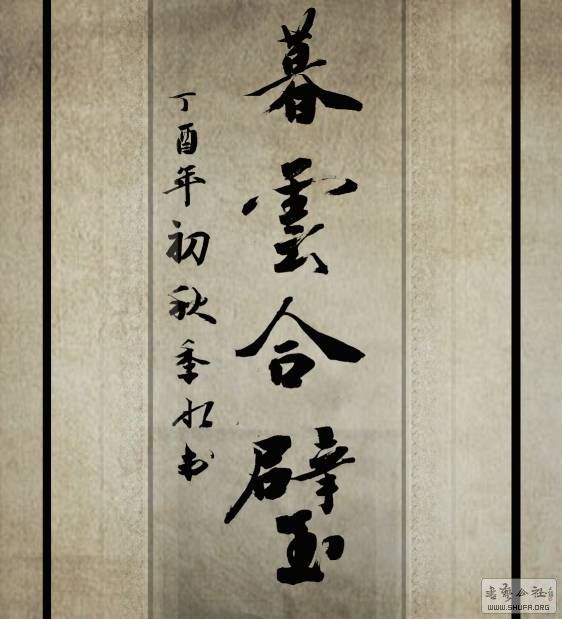 暮雲合璧
丁酉年初秋季水书
书法公社
WWW.SHUFA.ORG